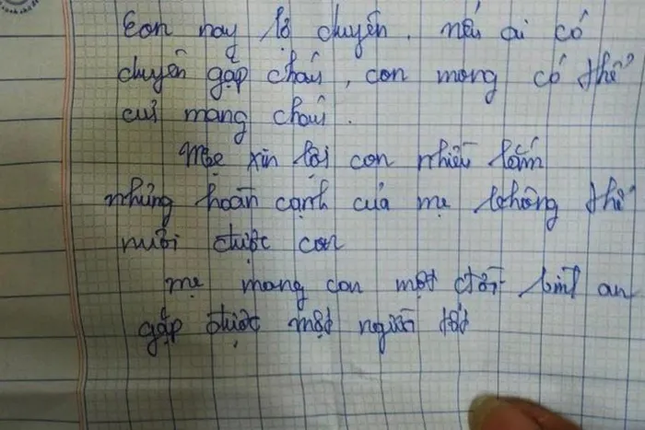 Con nay lỡ chuyến. nếu ai có
duyên gặp cháu, con mong có thể
cưu mang cháu.
Mẹ xin lỗi con nhiều lắm
nhưng hoàn cạnh của mẹ không thể
nuôi được con
mẹ mong con một đời bình an
gặp được một người tốt